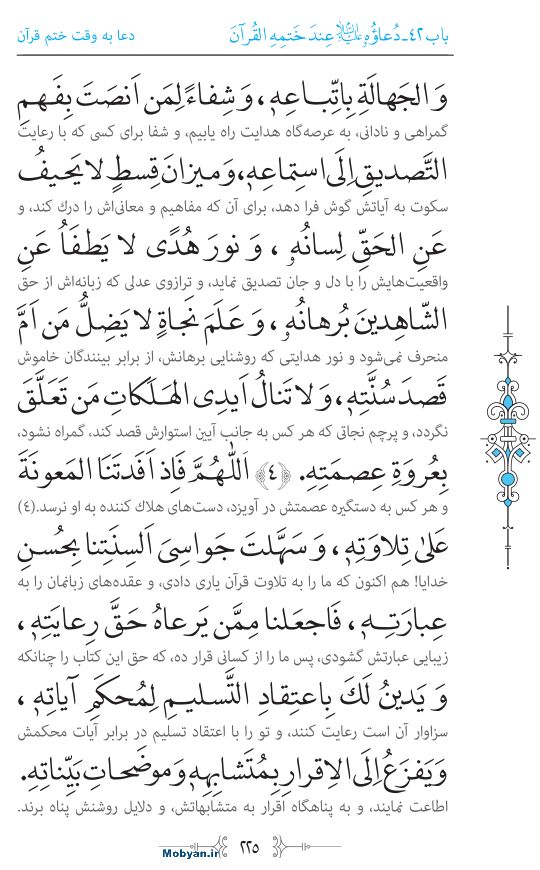 باب ۴۲ـ دُعاؤُهِ عِندَ خَتمِهِ القُرآنَ
دعا به وقت ختم قرآن
وَ الجَهالَةِ بِاتِّبـاعِهٖ، وَ شِفاءً لِمَن اَنصَتَ بِفَـهمِ
گمراهی و نادانی، به عرصه‌گاه هدایت راه یابیم، و شفا برای کسی که با رعایت
التَّصدیقِ اِلَی استِماعِهٖ، وَ میزانَ قِسطٍ لا یَحیـفُ
سکوت به آیاتش گوش فرا دهد، برای آن که مفاهیم و معانی‌اش را درك کند، و
عَنِ الحَقِّ لِسانُهُ، وَ نورَ هُدًی لا یَطفَأُ عَنِ
واقعیت‌هایش را با دل و جان تصدیق نماید، و ترازوی عدلی که زبانه‌اش از حق
الشّاهِدینَ بُرهانُهُ، وَ عَلَمَ نَجاةٍ لا یَضِلُّ مَن اَمَّ
منحرف نمی‌شود و نور هدایتی که روشنایی برهانش، از برابر بینندگان خاموش
قَصدَ سُنَّتِهٖ، وَ لا تَنالُ اَیدِی الهَلَکاتِ مَن تَعَلَّقَ
نگردد، و پرچم نجاتی که هر کس به جانب آیین استوارش قصد کند، گمراه نشود،
بِعُروَةِ عِصمَتِهِ. ﴿۴﴾ اَللّٰهُمَّ فَاِذ اَفَدتَنَا المَعونَةَ
و هر کس به دستگیره عصمتش در آویزد، دست‌های هلاك کننده به او نرسد.(۴)
عَلیٰ تِلاوَتِهٖ، وَ سَهَّلتَ جَواسِیَ اَلسِنَتِنا بِحُسنِ
خدایا! هم اکنون که ما را به تلاوت قرآن یاری دادی، و عقده‌های زبانمان را به
عِبارَتِـهٖ، فَاجعَلنا مِمَّن یَرعاهُ حَقَّ رِعایَتِهٖ،
زیبایی عبارتش گشودی، پس ما را از کسانی قرار ده، که حق این کتاب را چنانکه
وَ یَدینُ لَكَ بِاعتِقادِ التَّسلیـمِ لِمُحکَمِ آیاتِهٖ،
سزاوار آن است رعایت کنند، و تو را با اعتقاد تسلیم در برابر آیات محکمش
وَ یَفزَعُ اِلَی الاِقرارِ بِمُتَشابِهِهٖ وَ موضَحاتِ بَیِّناتِهِ.
اطاعت نمایند، و به پناهگاه اقرار به متشابهاتش، و دلایل روشنش پناه برند.
۲۲۵
Mobyan.ir